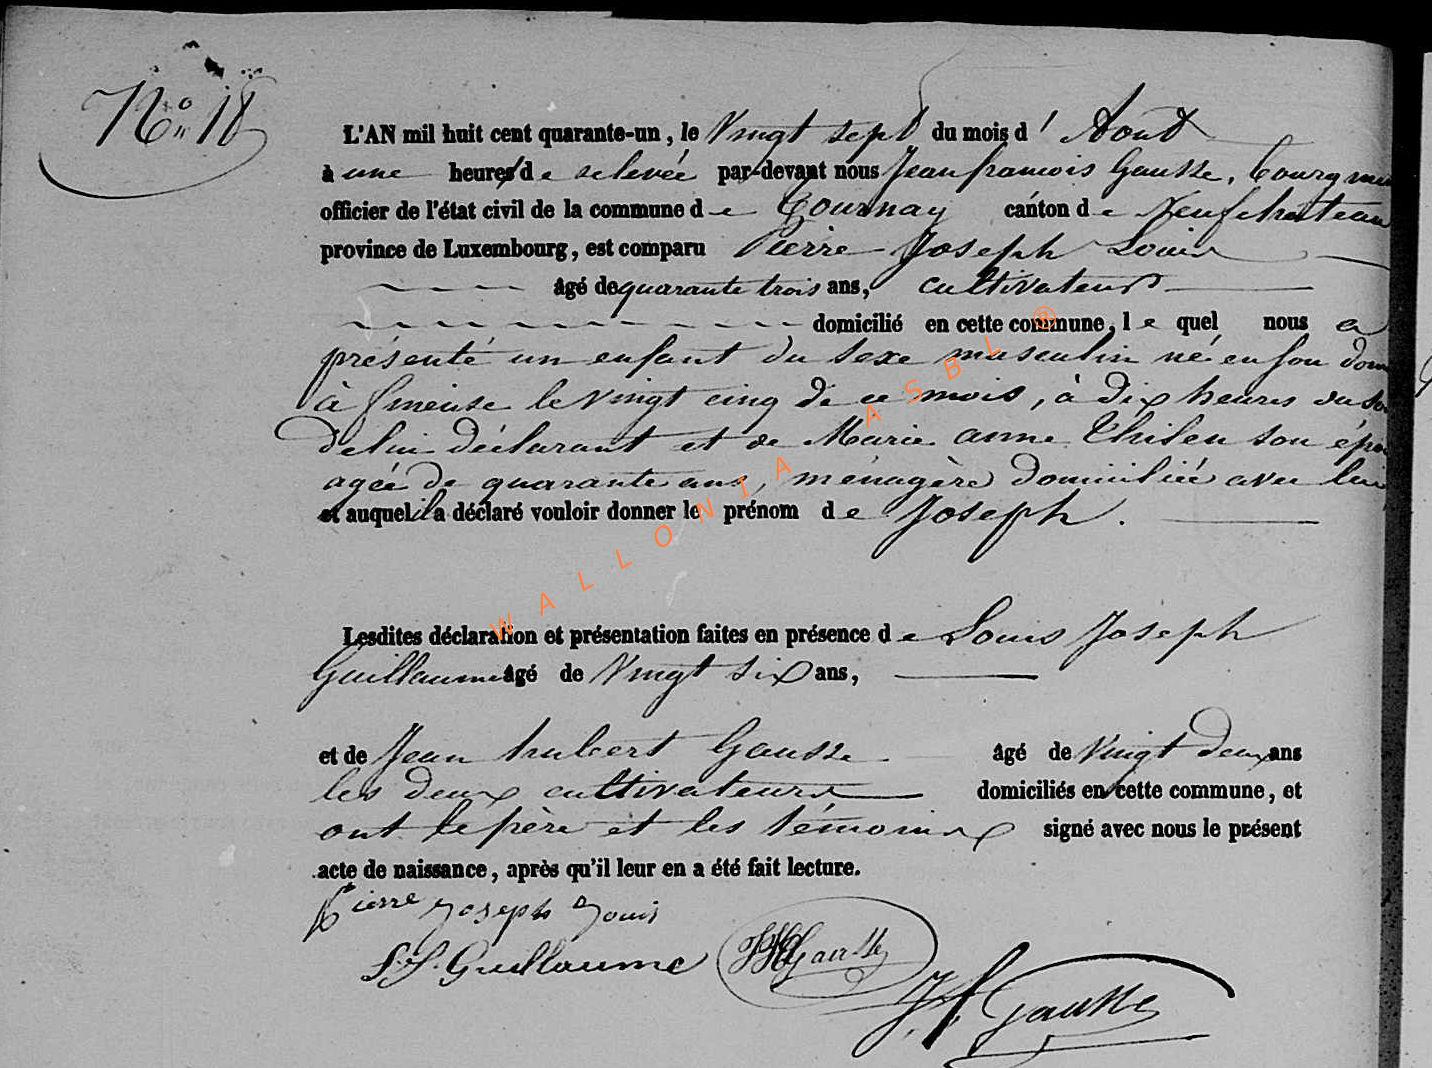 No 18
L'AN mil huit cent quarante-un, le Vingt sept du mois d' Aout
à une heures de relevée par-devant nous Jean francois Gausse, bourgme
officier de l'état civil de la commune de Tournay canton de Neufchateau
province de Luxembourg, est comparu Pierre Joseph Louis
âgé de quarante trois ans, cultivateur
domicilié en cette commune, le quel nous a
présenté un enfant du sexe masculin né en son dom
à le vingt cinq de ce mois, à dix heures du so
de lui déclarant et de Marie anne son épou
agée de quarante ans, ménagère domiciliée avec lui
et auquel il a déclaré vouloir donner le prénom de Joseph.
Lesdites déclaration et présentation faites en présence de Louis Joseph
Guillaume âgé de Vingt six ans,
et de Jean hubert Gausse âgé de Vingt deux ans
les deux cultivateurs domiciliés en cette commune, et
ont le père et les témoins signé avec nous le présent
acte de naissance, après qu'il leur en a été fait lecture.
Pierre Joseph Louis
L. J. Guillaume JHGausse
J. f. Gausse
WALLONIA ASBL ®